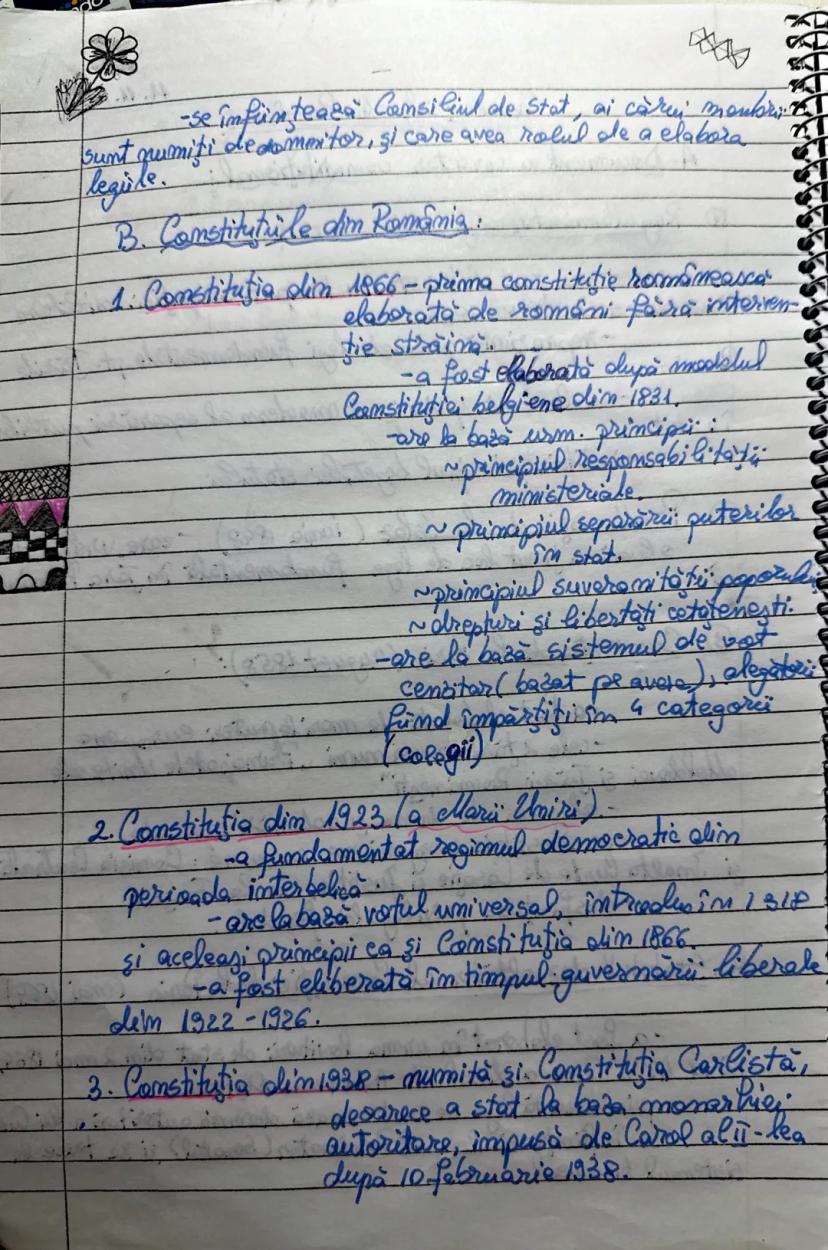 -se înființează Consiliul de Stat, ai cărui membri
sunt numiți de domnitor, și care avea rolul de a elabora
legile.
B. Constituțiile din România:
1. Constituția din 1866 - prima constituție românească
elaborată de români fără interven-
ție străină.
-a fost elaborată după modelul
Constituției belgiene din 1831.
-are la bază urm. principii:
~principiul responsabilității
ministeriale.
~ principiul separării puterilor
în stat.
~principiul suveranității poporului
~drepturi și libertăți cetățenești.
-are la bază sistemul de vot
cenzitar (bazat pe avere), alegătorii
fiind împărțiți în 4 categorii
(colegii)
2. Constituția din 1923 (a Marii Uniri).
-a fundamentat regimul democratic din
perioada interbelică.
-are la bază votul universal, introdus în 1918
și aceleași principii ca și Constituția din 1866.
-a fost eliberată în timpul guvernării liberale
din 1922-1926.
3. Constituția din 1938 - numită și Constituția Carlistă,
deoarece a stat la baza monarhiei
autoritare, impusă de Carol al II-lea
după 10 februarie 1938.